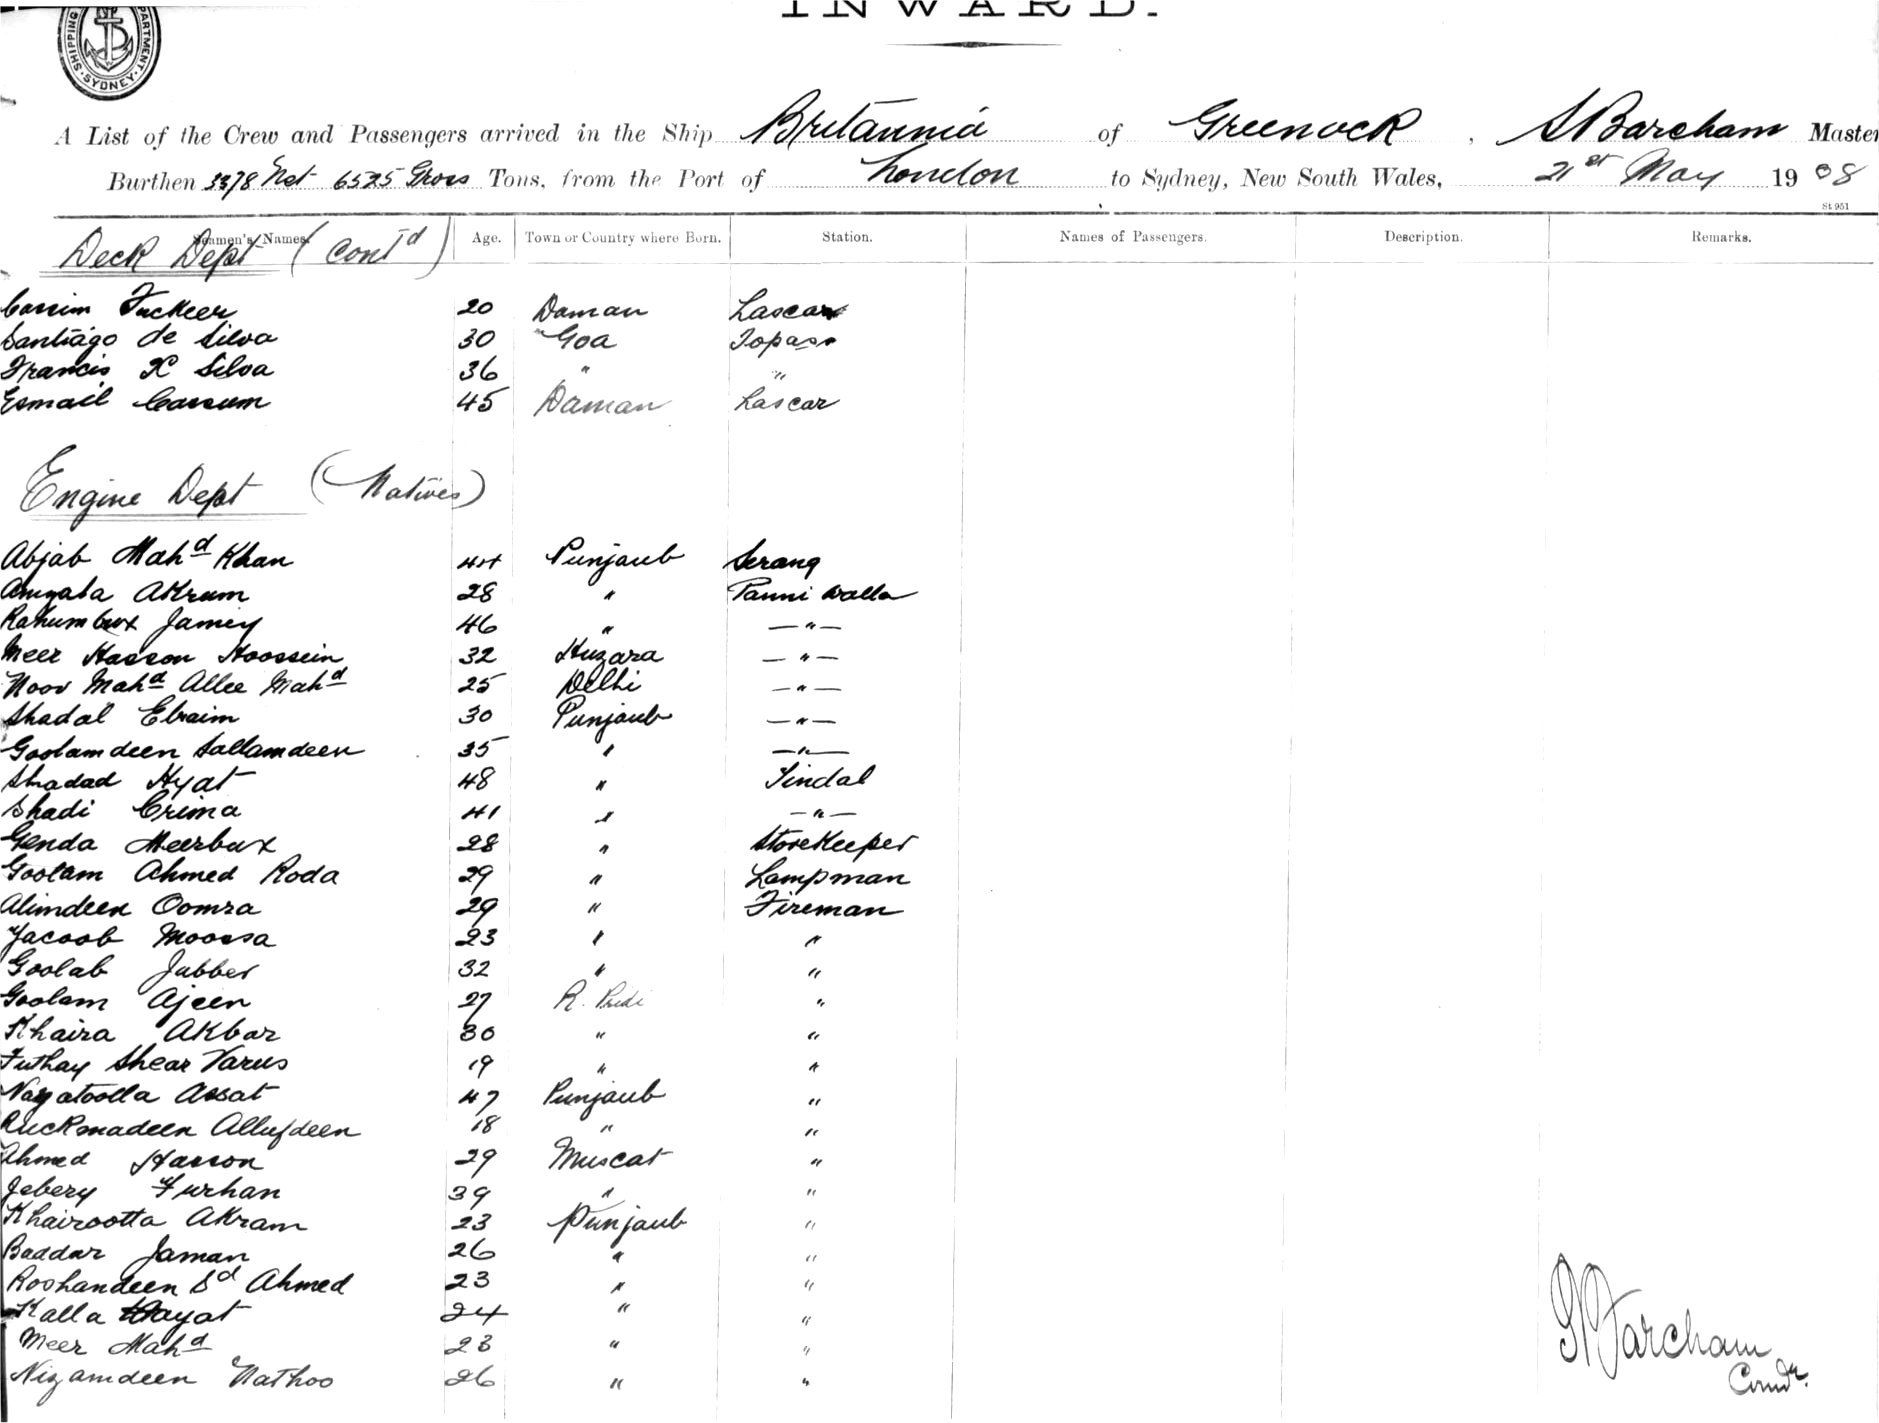 INWARD.
SHIPPING DEPARTMENT. SYDNEY
A List of the Crew and Passengers arrived in the Ship Britannia of Greenock, S Barcham Master
Burthen 3378 Net 6525 Gross Tons, from the Port of London to Sydney, New South Wales, 21st May 1908
St 951
Seamen's Names. Age. Town or Country where Born. Station. Names of Passengers. Description. Remarks.
Deck Dept (Contd)
Cassim Fuckeer 20 Daman Lascar
Santiago de Silva 30 Goa Topass
Francis X Silva 36 " "
Esmail Cassum 45 Daman Lascar
Engine Dept (Natives)
Abjab Mahd Khan 44 Punjaub Serang
Akrum 28 " Panni walla
Rahumbux 46 " — " —
Meer Hasson Hoossein 32 Huzara — " —
Noor Mahd Allee Mahd 25 Delhi — " —
Shadal Ebraim 30 Punjaub — " —
Goolamdeen Sallamdeen 35 " — " —
Shadad Hyat 48 " Tindal
Shadi Crima 41 " — " —
Genda Meerbux 28 " StoreKeeper
Goolam Ahmed Roda 29 " Lampman
Alimdeen Oomra 29 " Fireman
Yacoob Moossa 23 " "
Goolab Jubber 32 " "
Goolam Ajeen 27 R. Pindi "
Khaira Akbar 30 " "
Futhay Shear Varus 19 " "
Nayatoolla Assat 47 Punjaub "
Ruckmadeen Allufdeen 18 " "
Ahmed Hasson 29 Muscat "
Jebery Furhan 39 " "
Khairootta Akram 23 Punjaub "
Baddar Jaman 26 " "
Roshandeen Sd Ahmed 23 " "
Kalla Hayat 24 " "
Meer Mahd 23 " "
Nizamdeen Nathoo 26 " "
Barcham
Comdr.